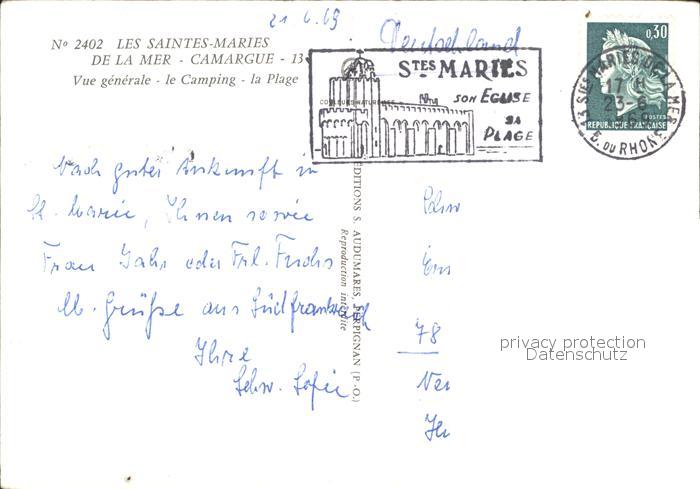 21 6.69
Deutschland
Nº 2402 LES SAINTES-MARIES
DE LA MER - CAMARGUE - 13
Vue générale - le Camping - la Plage
STES MARIES
SON EGLISE
SA
PLAGE
0,30
POSTES
REPUBLIQUE FRANCAISE
13 STES MARIES DE LA MER
17 H
23-6
1969
B. DU RHONE
Nach guter Ankunft in
St. Marie, Ihnen sowie
Frau Jahr oder Frl. Fuchs
lb. Grüße aus Südfrankreich
Ihre
Schw. Sofie
EDITIONS S. AUDUMARES, PERPIGNAN (P.-O.)
Reproduction interdite
Schw
78
privacy protection
Datenschutz